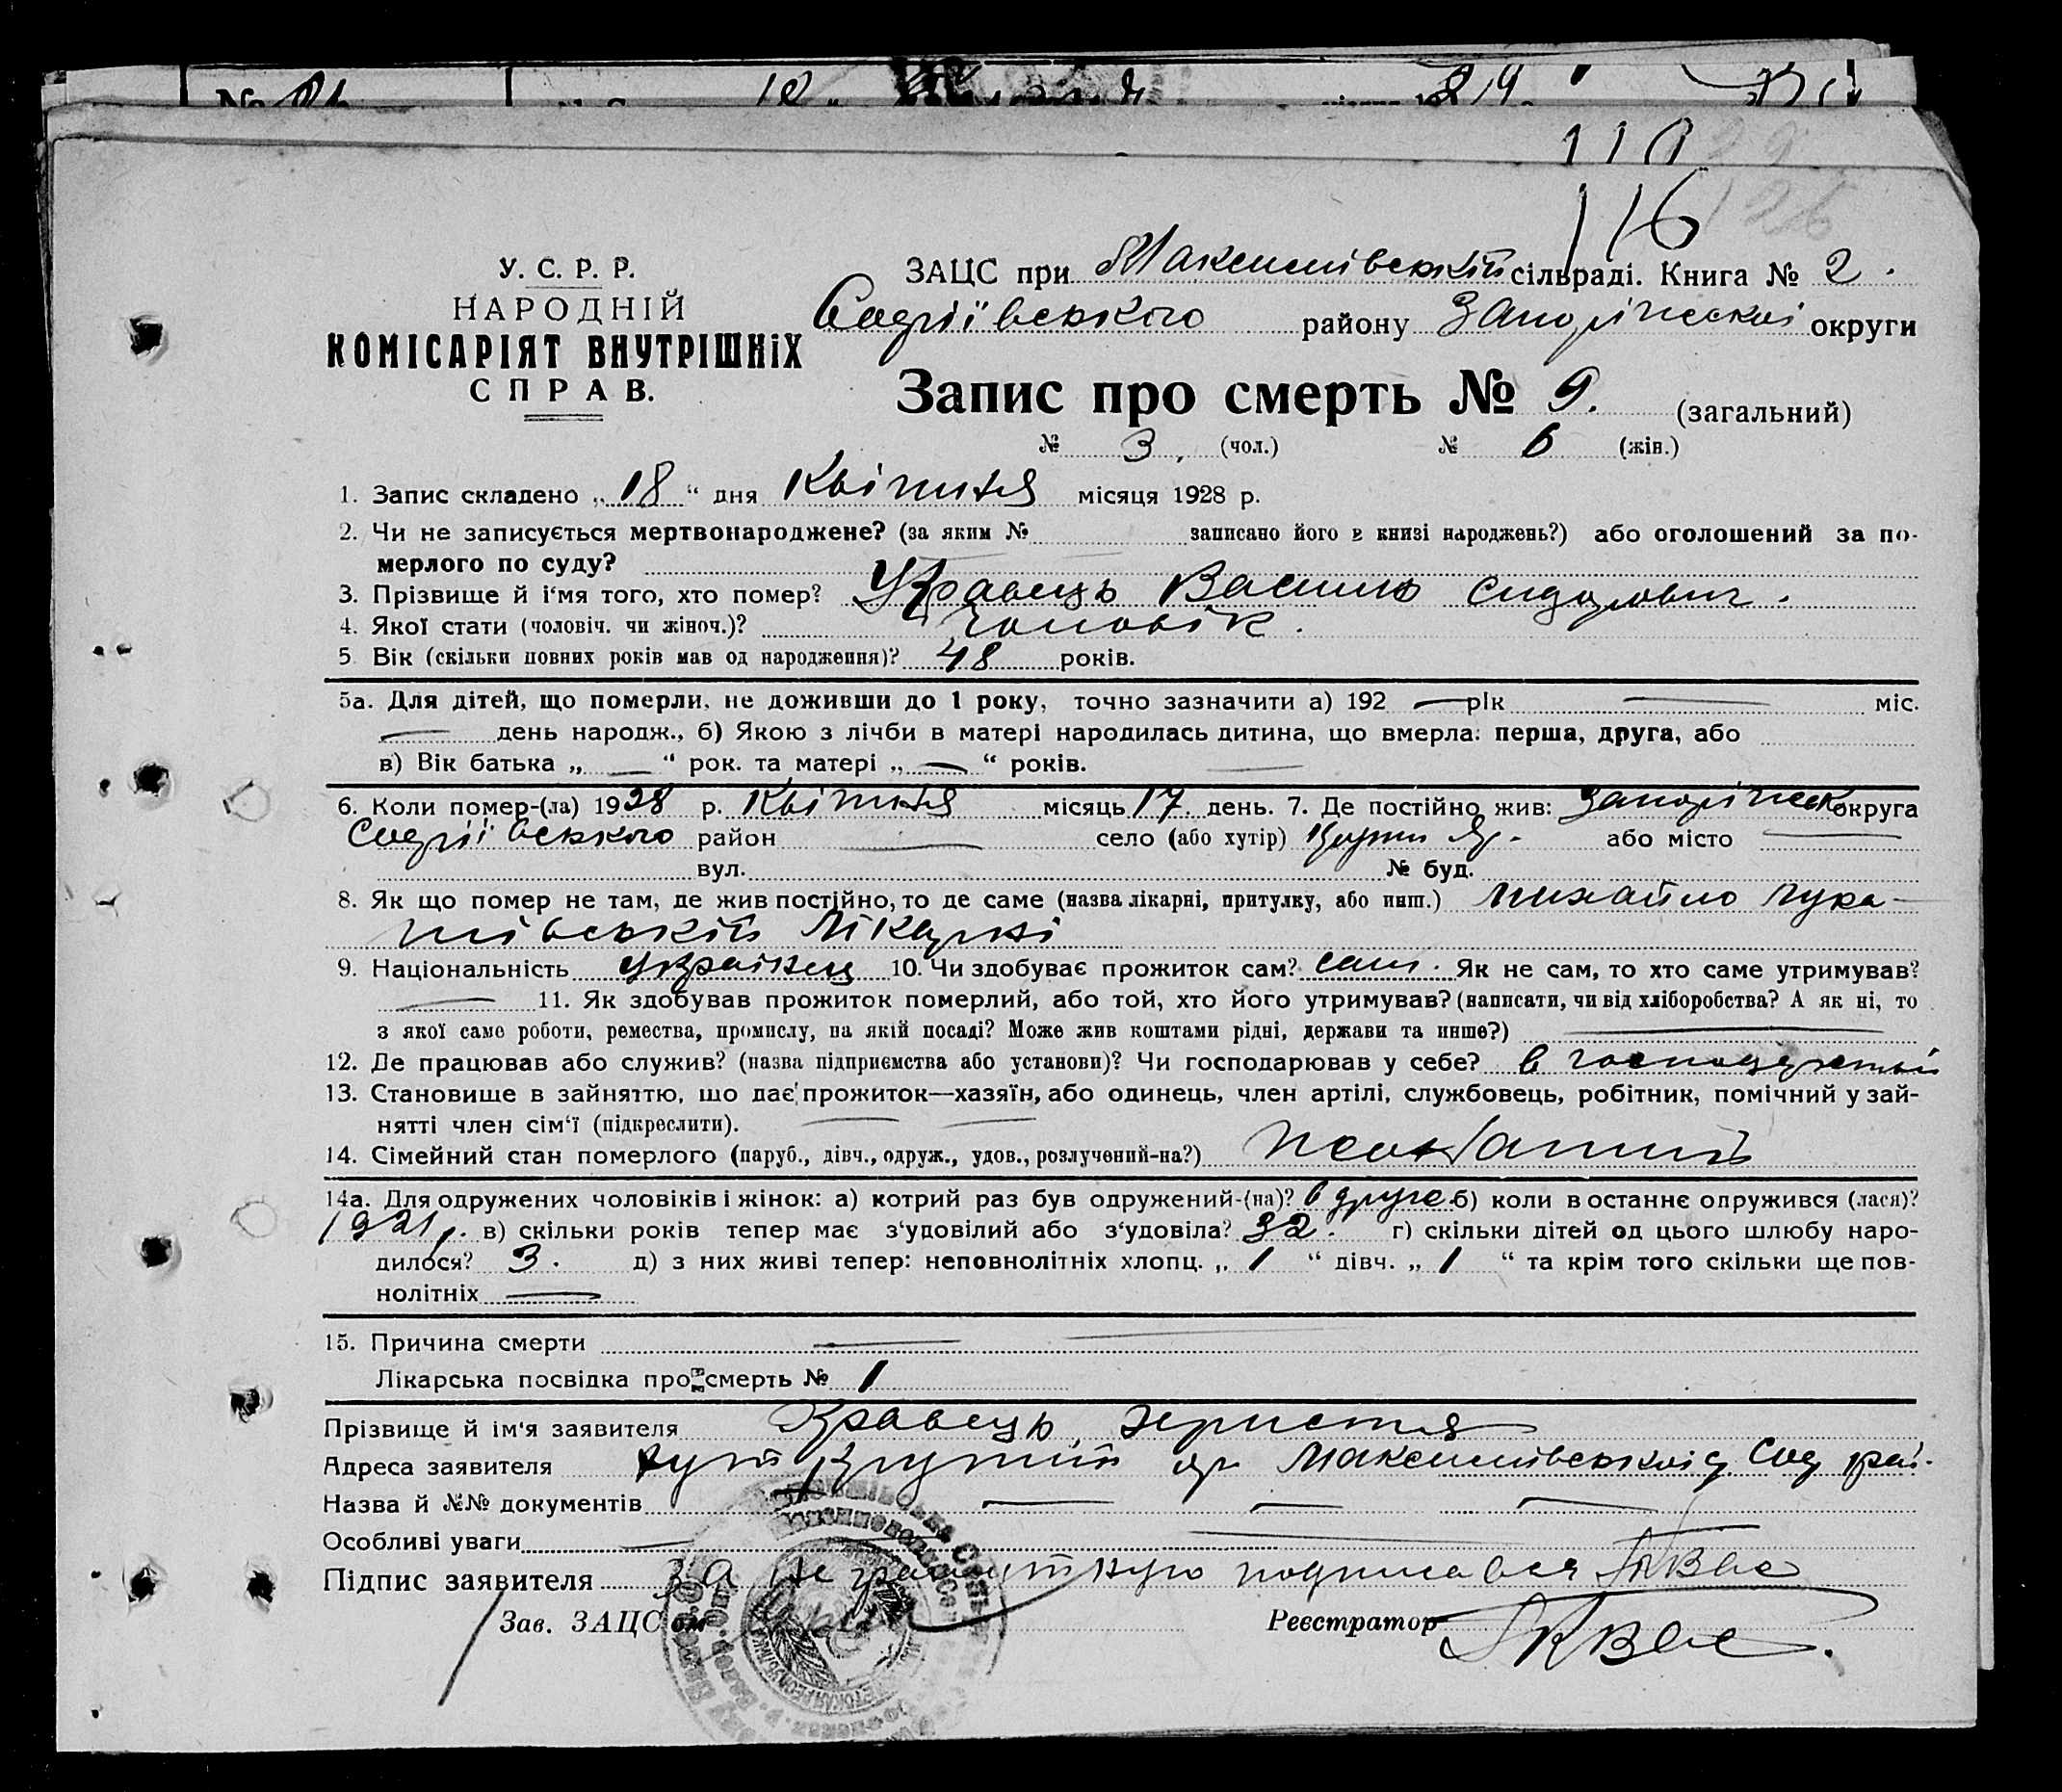 116
У. С. Р. Р.
НАРОДНІЙ
КОМІСАРІЯТ ВНУТРІШНІХ
СПРАВ.
ЗАЦС при Максимівській сільраді. Книга № 2.
Софіївського району Запоріжської округи
Запис про смерть № 9. (загальний)
№ 3. (чол.) № 6 (жін.)
1. Запис складено „18“ дня Квітня місяця 1928 р.
2. Чи не записується мертвонароджене? (за яким № записано його в книзі народжень?) або оголошений за по-
мерлого по суду?
3. Прізвище й і'мя того, хто помер? Кравець Василь Сидорович.
4. Якої стати (чоловіч. чи жіноч.)? чоловік.
5 Вік (скільки повних років мав од народження)? 48 років.
5а. Для дітей, що померли, не доживши до 1 року, точно зазначити а) 192 — рік — міс.
— день народж., б) Якою з лічби в матері народилась дитина, що вмерла: перша, друга, або
в) Вік батька „ — “ рок. та матері „ — “ років. —
6. Коли помер-(ла) 1928 р. Квітня місяць 17 день. 7. Де постійно жив: Запоріжськ округа
Софіївського район — село (або хутір) Яр. або місто —
вул. № буд.
8. Як що помер не там, де жив постійно, то де саме (назва лікарні, притулку, або инш.) Михайло Лука-
шівській лікарні
9. Національність українец 10. Чи здобуває прожиток сам? сам. Як не сам, то хто саме утримував?
— 11. Як здобував прожиток померлий, або той, хто його утримував? (написати, чи від хліборобства? А як ні, то
з якої само роботи, ремества, промислу, на якій посаді? Може жив коштами рідні, держави та инше?) —
12. Де працював або служив? (назва підприємства або установи)? Чи господарював у себе? в господарстві
13. Становище в зайняттю, що дає прожиток—хазяїн, або одинець, член артілі, службовець, робітник, помічний у зай-
нятті член сім'ї (підкреслити). — —
14. Сімейний стан померлого (паруб., дівч., одруж., удов., розлучений-на?)
14а. Для одружених чоловіків і жінок: а) котрий раз був одружений-(на)? в друге б) коли в останнє одружився (лася)?
1921 р. в) скільки років тепер має з'удовілий або з'удовіла? 32. г) скільки дітей од цього шлюбу наро-
дилося? 3. д) з них живі тепер: неповнолітніх хлопц. „ 1 “ дівч. „ 1 “ та крім того скільки ще пов-
нолітніх —
15. Причина смерти —
Лікарська посвідка про смерть № 1
Прізвище й ім'я заявителя Кравець Христя
Адреса заявителя хут Крутий яр Максимівської с Соф рай.
Назва й №№ документів — — —
Особливі уваги — —
Підпис заявителя за не грамотную подписався
Зав. ЗАЦС'ом Реєстратор